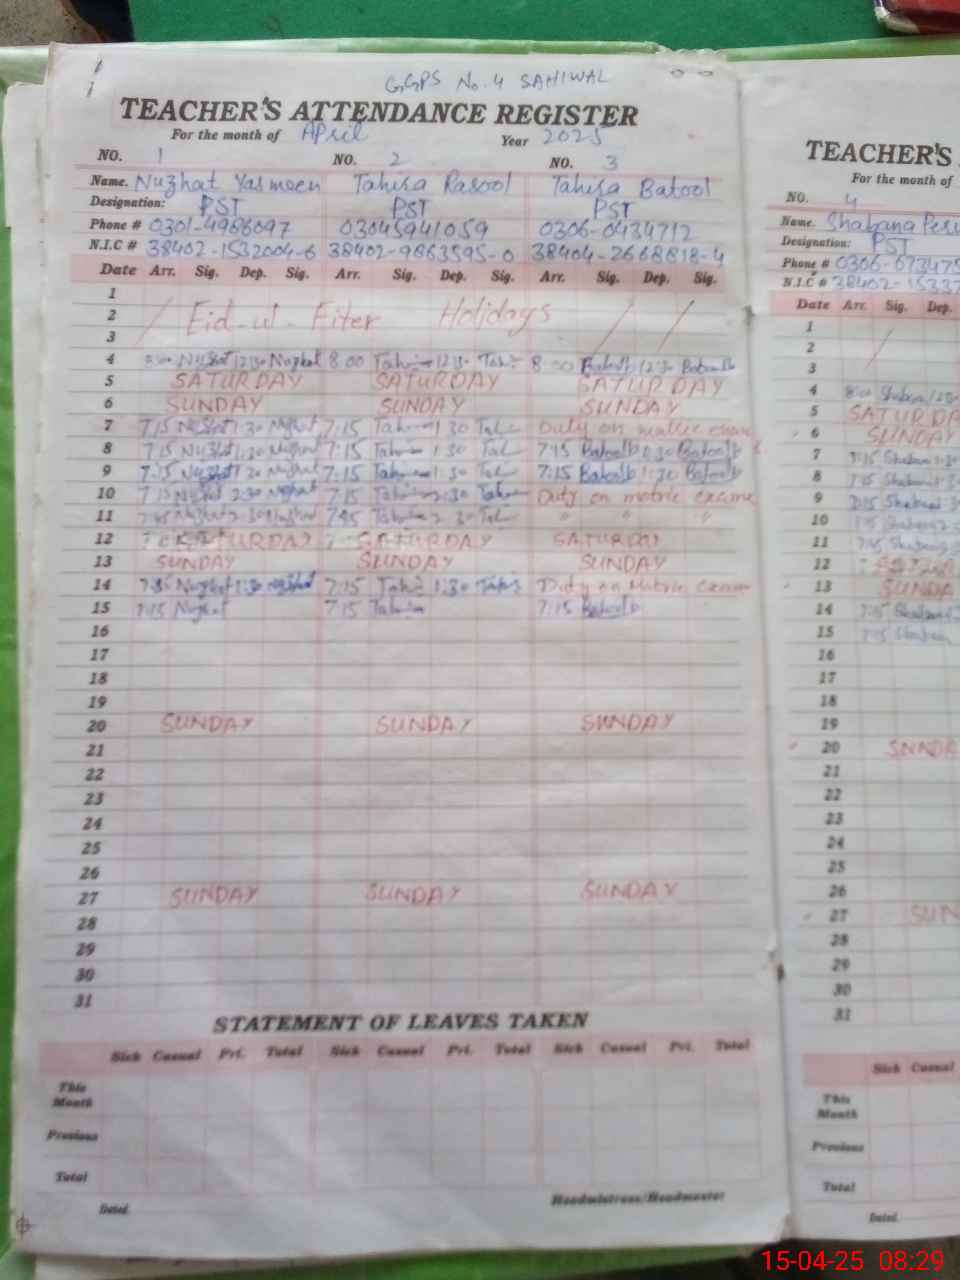 GGPS No. 4 SAHIWAL
TEACHER'S ATTENDANCE REGISTER
For the month of April Year 2025
NO. 1 NO. 2 NO. 3
Name. Nuzhat Yasmeen Tahira Rasool Tahira Batool
Designation: PST PST PST
Phone # 0301-4966097 03045941059 0306-0434712
N.I.C # 38402-1532004-6 38402-9863595-0 38404-2668618-4
Date Arr. Sig. Dep. Sig. Arr. Sig. Dep. Sig. Arr. Sig. Dep. Sig.
1
2 Eid-ul-Fiter Holidays
3
4 8:00 Nuzhat 12:30 Nuzhat 8:00 12:30 8:00 Batool 12:30 Batool
5 SATURDAY SATURDAY SATURDAY
6 SUNDAY SUNDAY SUNDAY
7 7:15 Nuzhat 1:30 Nuzhat 7:15 1:30 Duty on matric exam
8 7:15 Nuzhat 1:30 Nuzhat 7:15 1:30 7:15 Batool 1:30 Batool
9 7:15 Nuzhat 1:30 Nuzhat 7:15 1:30 7:15 Batool 1:30 Batool
10 7:15 Nuzhat 2:30 Nuzhat 7:15 2:30 Duty on matric exame
11 7:45 Nuzhat 2:30 Nuzhat 7:45 2:30 " " "
12 SATURDAY SATURDAY SATURDAY
13 SUNDAY SUNDAY SUNDAY
14 Nuzhat 1:30 Nuzhat 7:15 1:30 Duty on Matric Exam
15 7:15 Nuzhat 7:15 7:15 Batool
16
17
18
19
20 SUNDAY SUNDAY SUNDAY
21
22
23
24
25
26
27 SUNDAY SUNDAY SUNDAY
28
29
30
31
STATEMENT OF LEAVES TAKEN
Sick Casual Pri. Total Sick Casual Pri. Total Sick Casual Pri. Total
This Month
Previous
Total
Headmistress/Headmaster
Dated.
TEACHER'S
For the month of
NO. 4
Name. Shabana
Designation: PST
Phone # 0306-073475
N.I.C # 38402-15337
Date Arr. Sig. Dep.
1
2
3
4 8:00
5 SATURDA
6 SUNDAY
7 7:15
8 7:15
9 7:15
10
11
12
13 SUNDA
14 7:15
15 7:15
16
17
18
19
20 SNNDA
21
22
23
24
25
26
27 SUN
28
29
30
31
Sick Casual
This Month
Previous
Total
Dated.
15-04-25 08:29